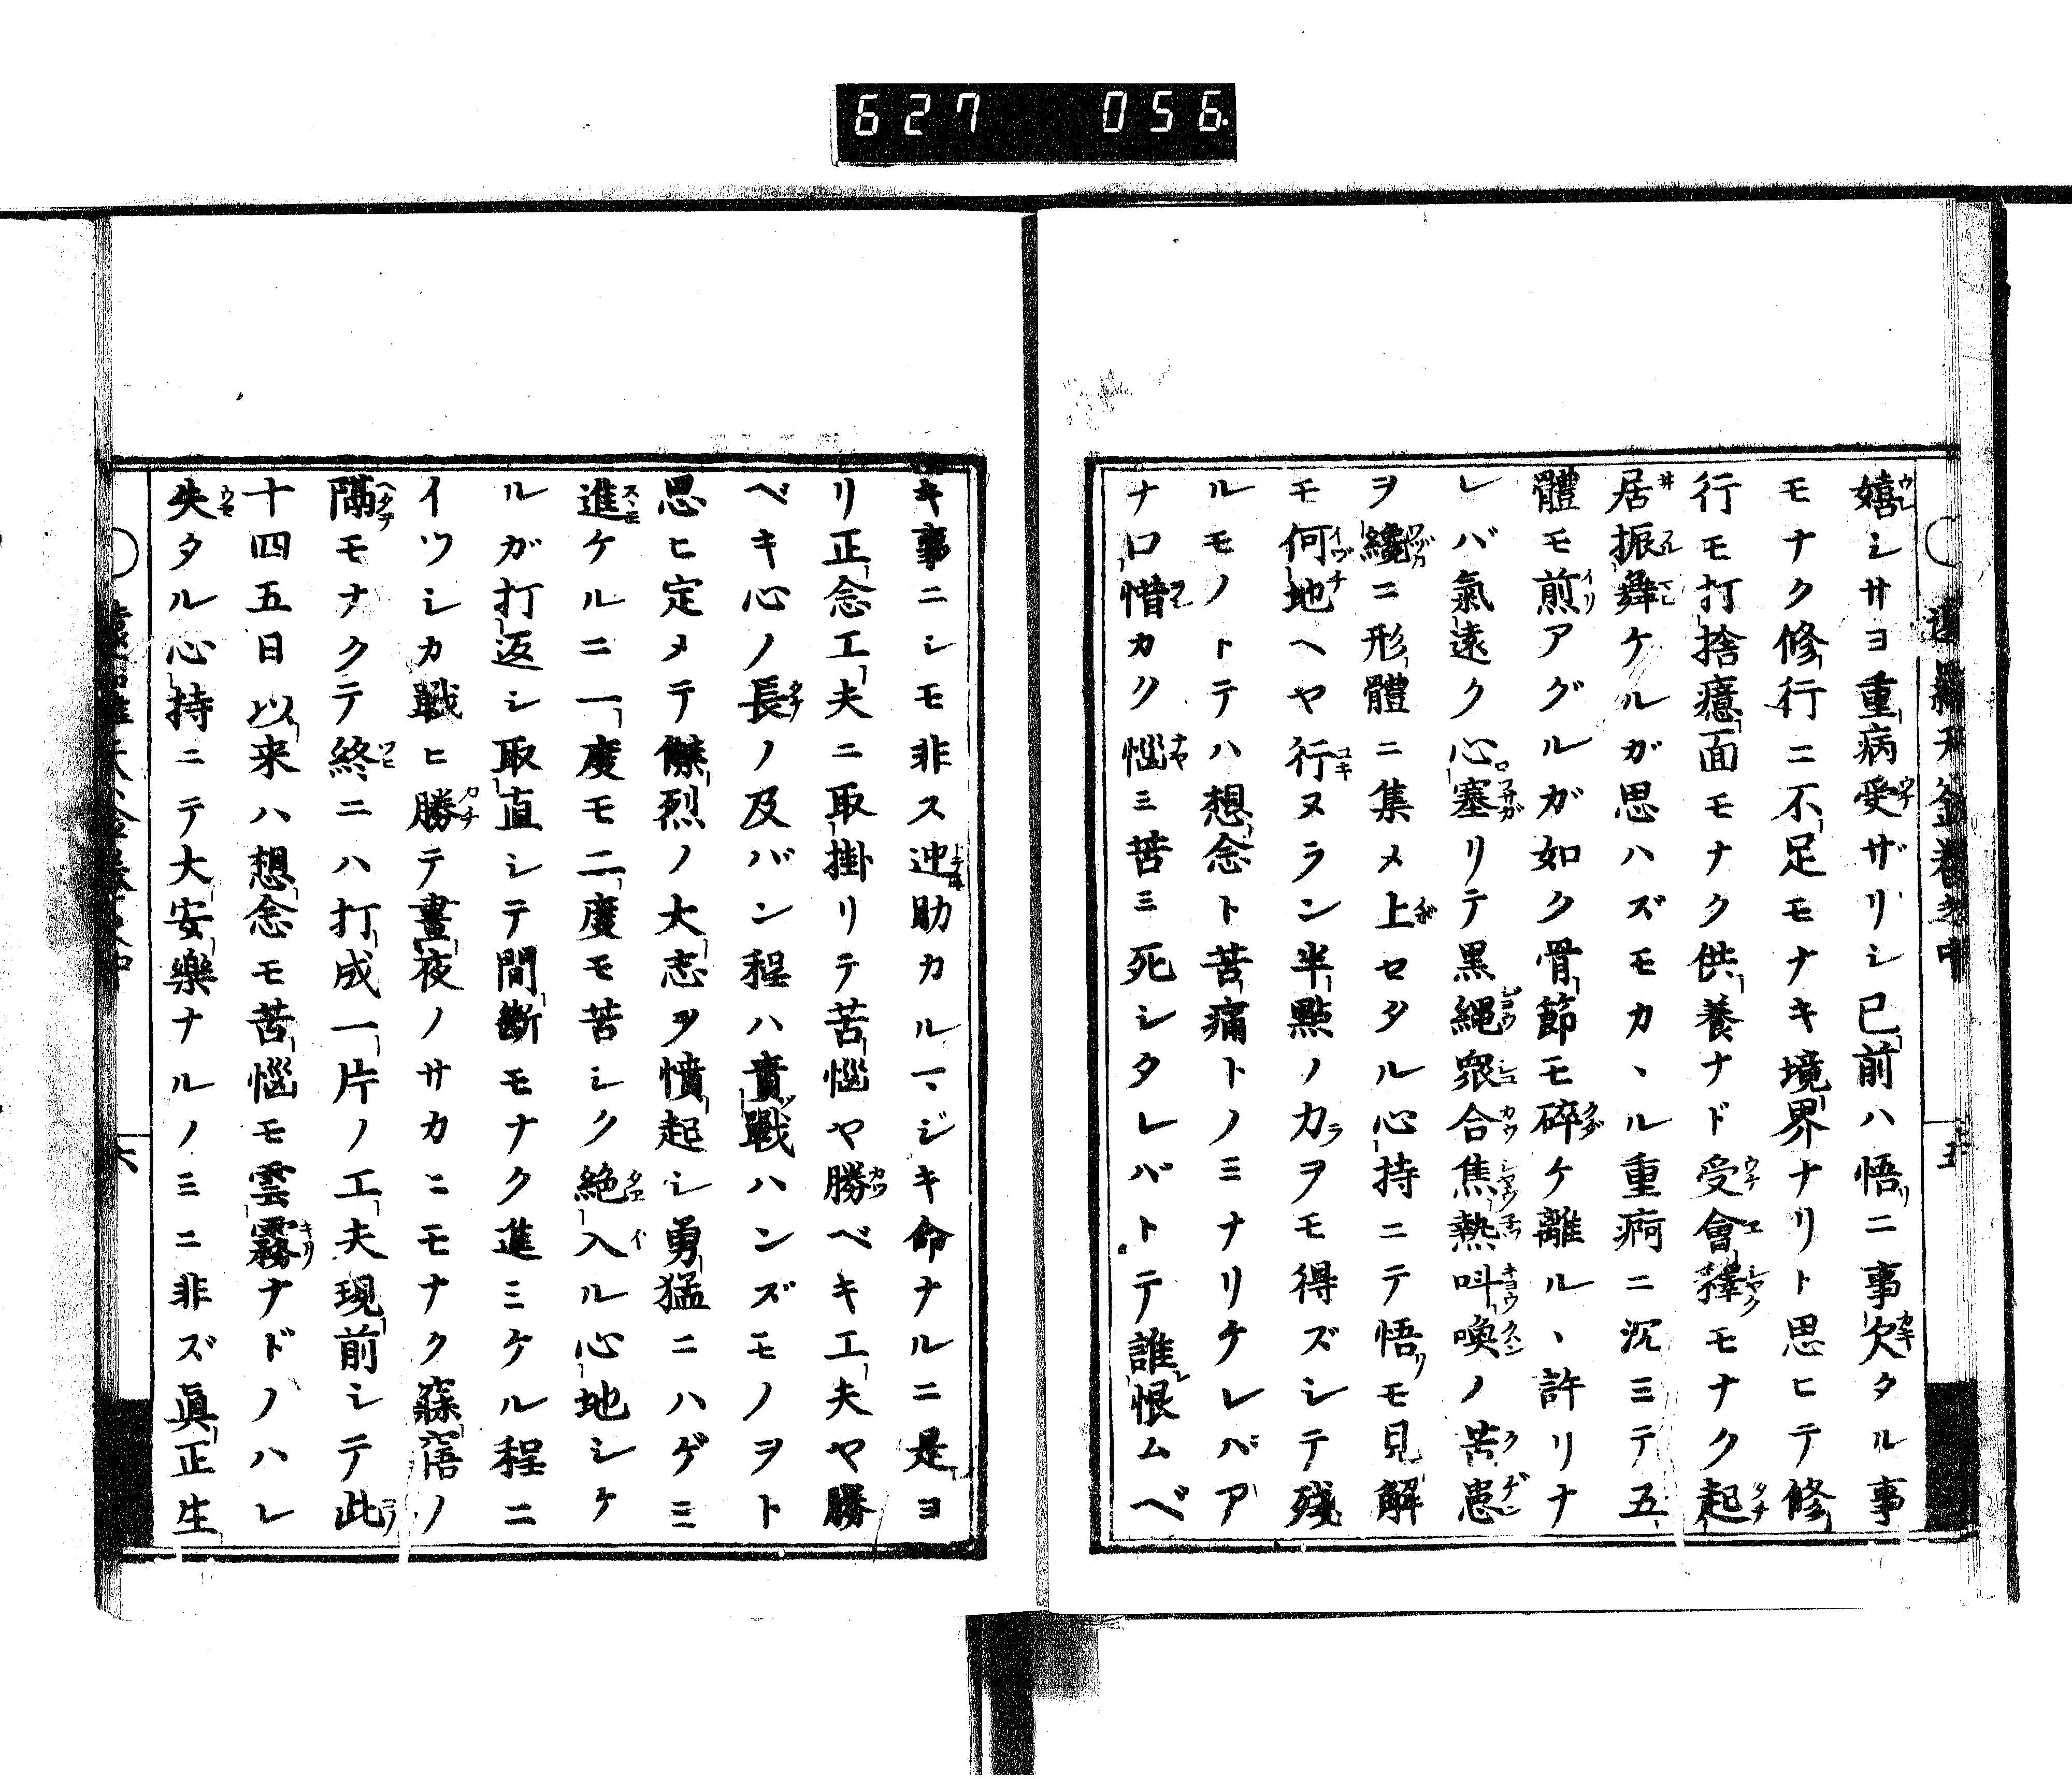 627 056
嬉シサヨ重病受ザリシ已前ハ悟リニ事欠タル事
モナク修行ニ不足モナキ境界ナリト思ヒテ修
行モ打捨癔面モナク供養ナド受會釋モナク起
居振舞ケルガ思ハズモカヽル重痾ニ沉ミテ五
體モ煎アグルガ如ク骨節モ碎ケ離ルヽ許リナ
レバ氣遠ク心塞リテ黒繩衆合焦熱叫喚ノ苦患
ヲ纔ニ形體ニ集メ上セタル心持ニテ悟リモ見解
モ何地ヘヤ行ヌラン半點ノ力ヲモ得ズシテ殘
ルモノトテハ想念ト苦痛トノミナリケレバア
ナ口惜カク惱ミ苦ミ死シタレバトテ誰レ恨ムベ
キ事ニシモ非ス迚助カルマジキ命ナルニ是ヨ
リ正念工夫ニ取掛リテ苦惱ヤ勝ベキ工夫ヤ勝
ベキ心ノ長ノ及バン程ハ責戰ハンズモノヲト
思ヒ定メテ傑烈ノ大志ヲ憤起シ勇猛ニハゲミ
進ケルニ一度モ二度モ苦シク絶入ル心地シケ
ルガ打返シ取直シテ間斷モナク進ミケル程ニ
イツシカ戰ヒ勝テ晝夜ノサカヒモナク寐寤ノ
隔モナクテ終ニハ打成一片ノ工夫現前シテ此
十四五日以来ハ想念モ苦惱モ雲霧ナドノハレ
失タル心持ニテ大安樂ナルノミニ非ズ眞正生
六